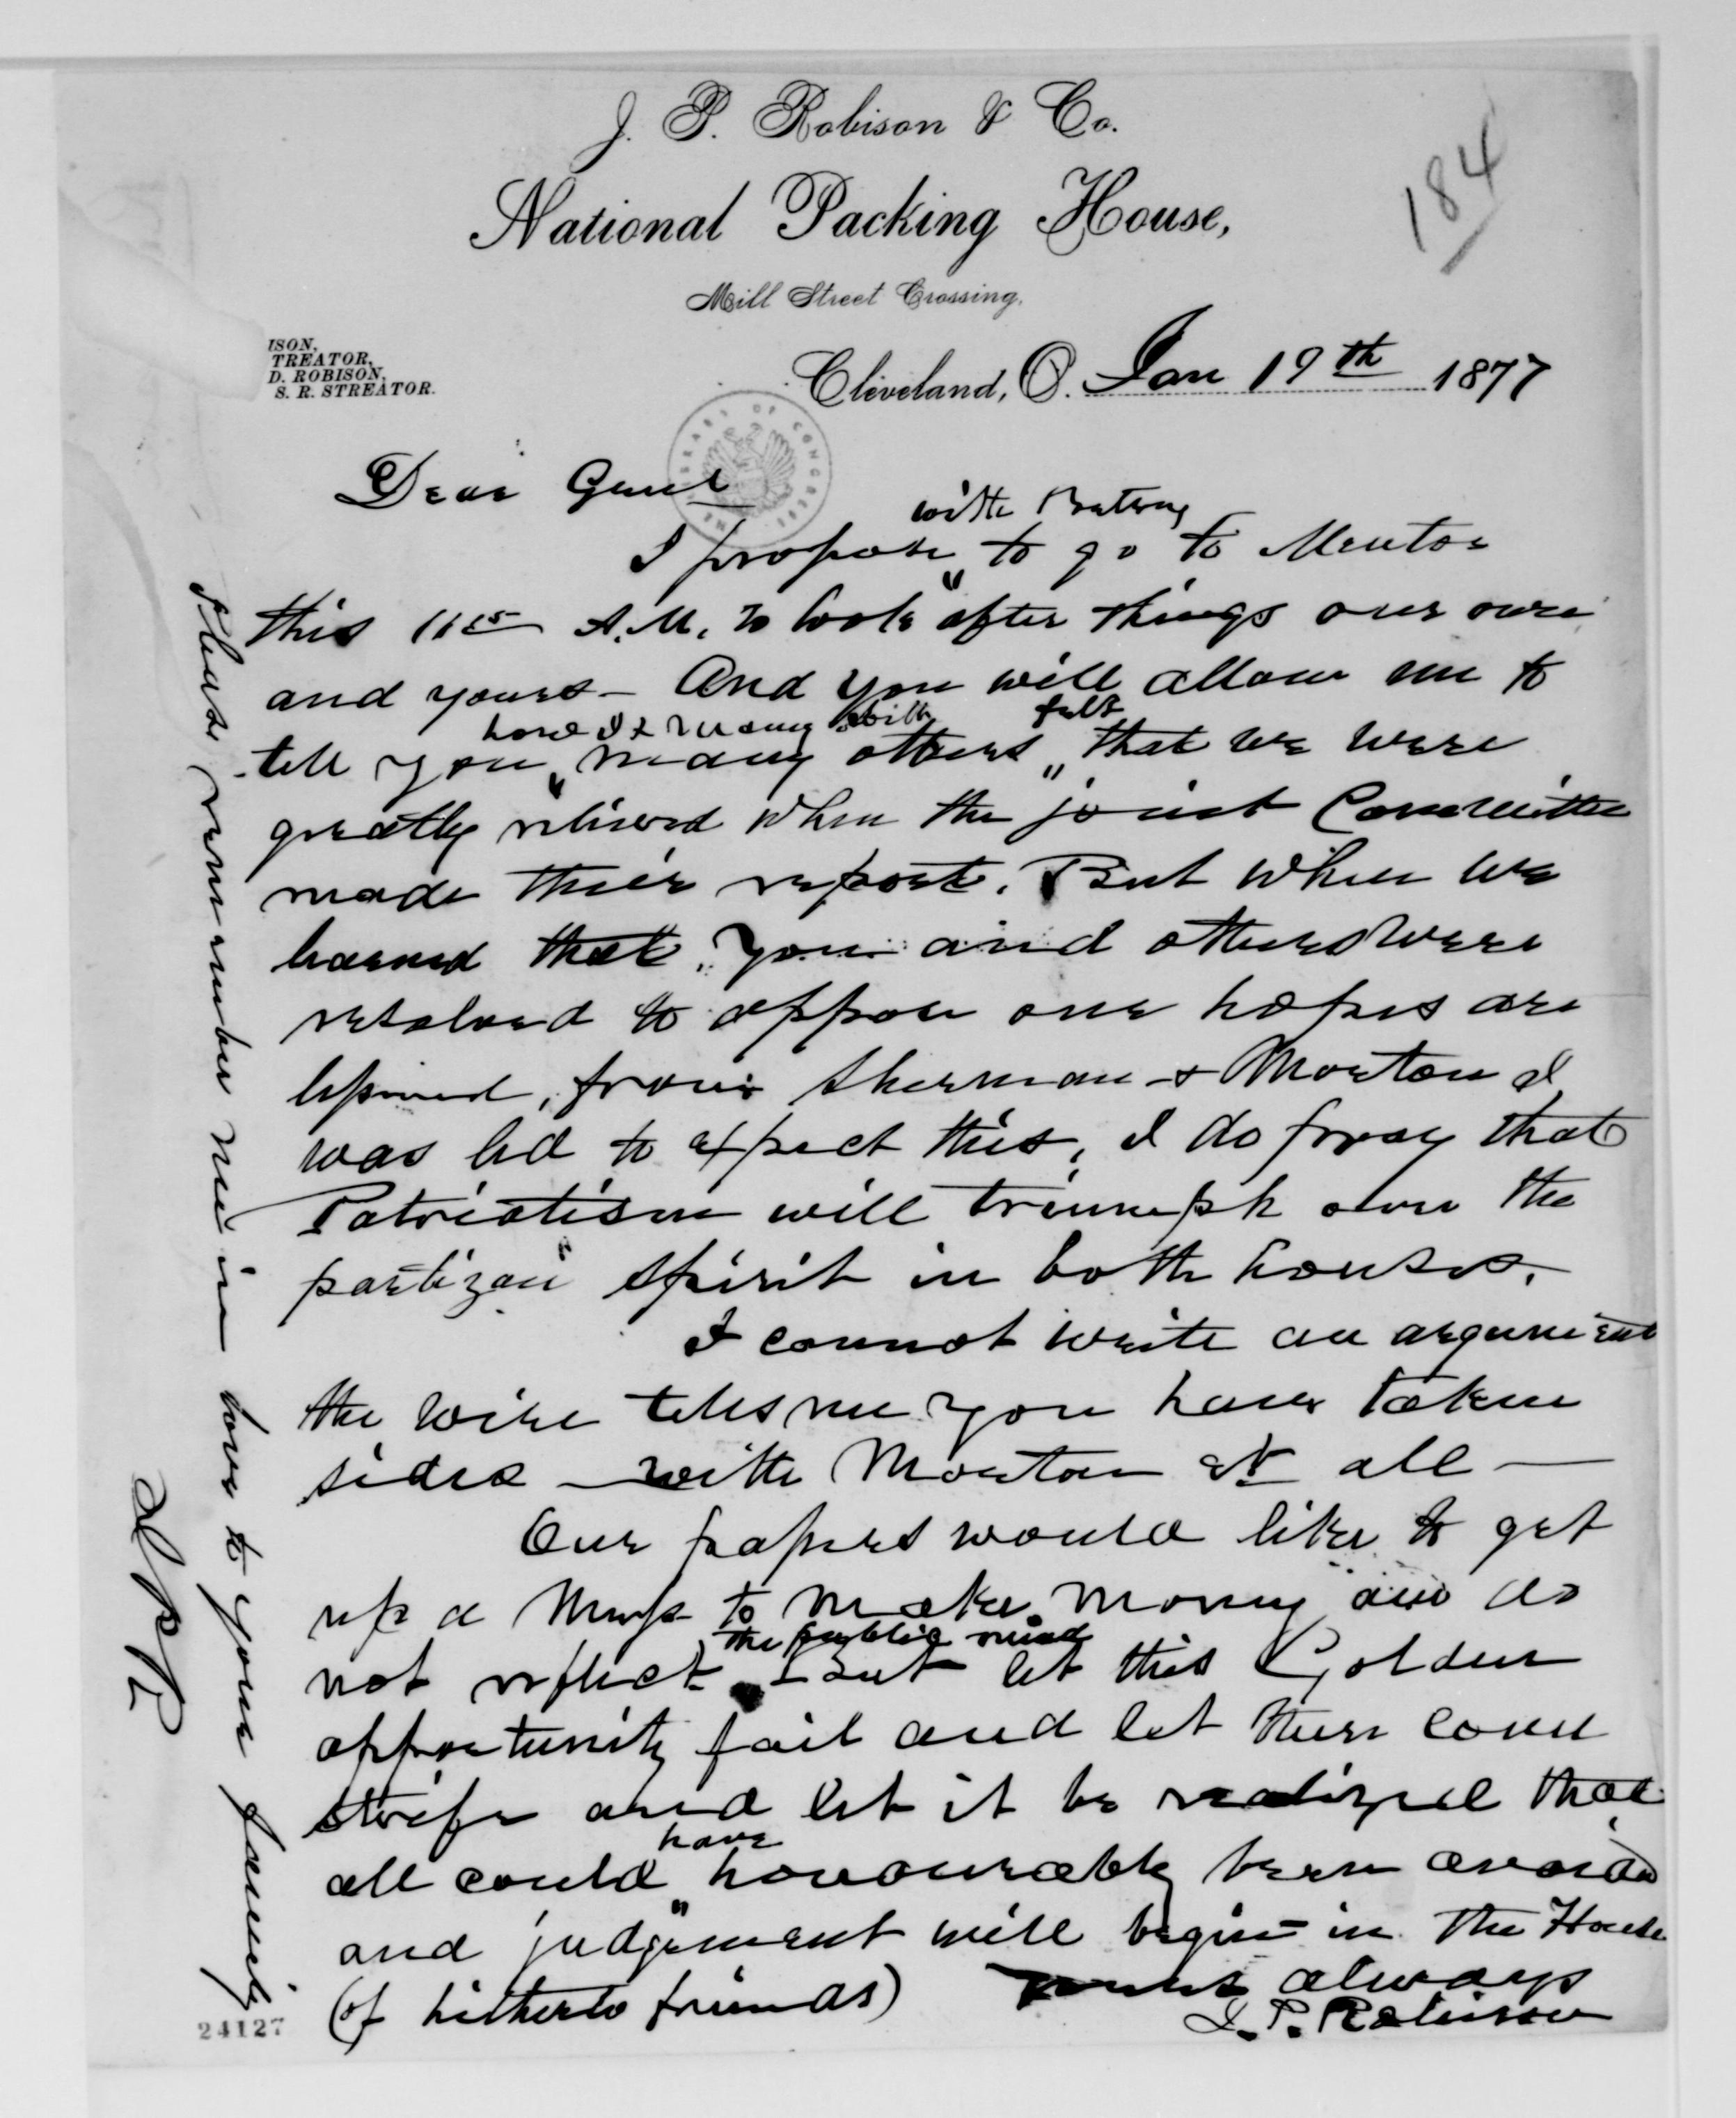 J. P. Robison & Co.
National Packing House,
Mill Street Crossing.
184
ISON,
TREATOR,
D. ROBISON,
S. R. STREATOR.
Cleveland, O. Jan 19th 1877
Dear Genl
I propose to go to Mentor
with
this 11 15 A.M. to look after things our own
and yours - And you will allow me to
tell you many others felt that we were
greatly relieved when the joint Committee
made their report. But when we
learned that you and others were
resolved to oppose our hopes are
, from Sherman & Morton I
was led to expect this, I do pray that
Patriotism will triumph over the
partizan spirit in both houses.
I cannot write an argument
the wire tells me you have taken
sides - with Morton et all -
Our papers would like to get
up a to make money and do
not reflect the public mind But let this Golden
opportunity fail and let there come
strife and let it be realized that
all could have honourably been avoided
and judgement will begin in the House
(of hitherto friends) yours always
J. P. Robison
Please remember me in love to your family
JPR
24127